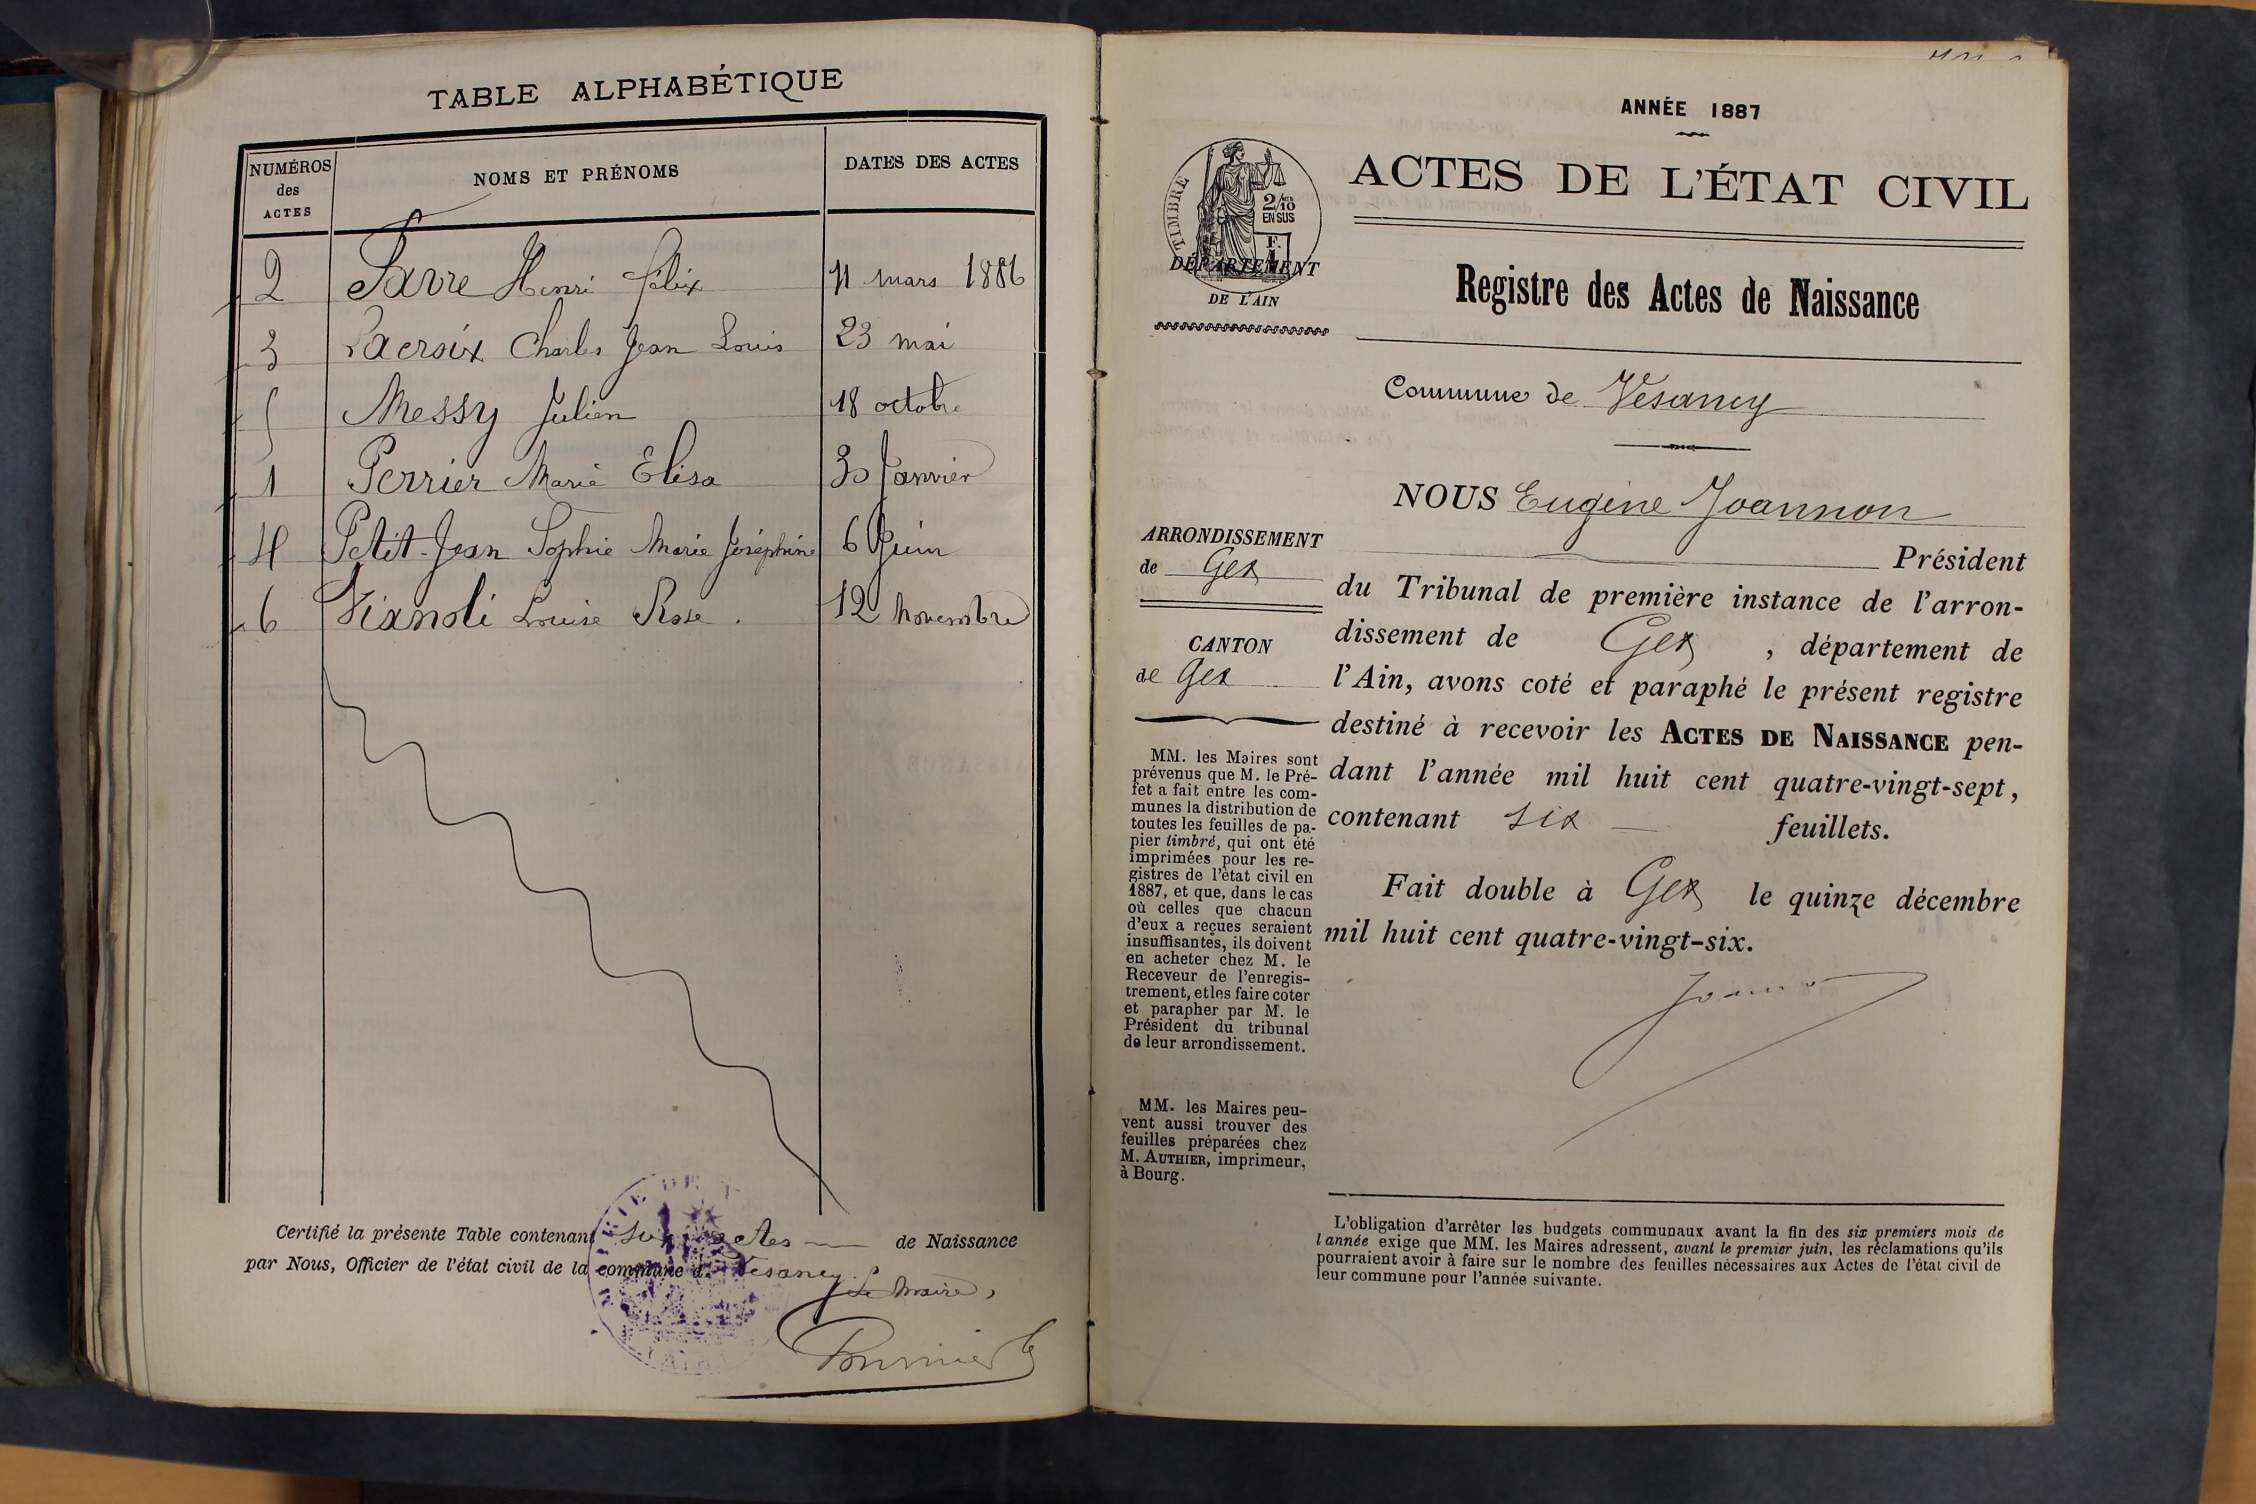 TABLE ALPHABÉTIQUE
NUMÉROS des ACTES
NOMS ET PRÉNOMS
DATES DES ACTES
2 Favre Henri félix 11 mars 1886
3 Lacroix Charles Jean Louis 23 mai
5 Messy Julien 18 octobre
1 Perrier Marie Elisa 30 Janvier
4 Petit-Jean Sophie Marie Joséphine 6 Juin
6 Vianoli Louise Rose. 12 novembre
Certifié la présente Table contenant six actes de Naissance
par Nous, Officier de l'état civil de la commune de Vesancy
Le Maire,
ANNÉE 1887
ACTES DE L'ÉTAT CIVIL
TIMBRE
2/10
EN SUS
F.
1
DÉPARTEMENT
DE L'AIN
Registre des Actes de Naissance
Commune de Vesancy
NOUS Eugène Joannon
Président
du Tribunal de première instance de l'arron-
dissement de Gex, département de
l'Ain, avons coté et paraphé le présent registre
destiné à recevoir les ACTES DE NAISSANCE pen-
dant l'année mil huit cent quatre-vingt-sept,
contenant six — feuillets.
Fait double à Gex le quinze décembre
mil huit cent quatre-vingt-six.
ARRONDISSEMENT
de Gex
CANTON
de Gex
MM. les Maires sont
prévenus que M. le Pré-
fet a fait entre les com-
munes la distribution de
toutes les feuilles de pa-
pier timbré, qui ont été
imprimées pour les re-
gistres de l'état civil en
1887, et que, dans le cas
où celles que chacun
d'eux a reçues seraient
insuffisantes, ils doivent
en acheter chez M. le
Receveur de l'enregis-
trement, et les faire coter
et parapher par M. le
Président du tribunal
de leur arrondissement.
MM. les Maires peu-
vent aussi trouver des
feuilles préparées chez
M. AUTHIER, imprimeur,
à Bourg.
L'obligation d'arrêter les budgets communaux avant la fin des six premiers mois de
l'année exige que MM. les Maires adressent, avant le premier juin, les réclamations qu'ils
pourraient avoir à faire sur le nombre des feuilles nécessaires aux Actes de l'état civil de
leur commune pour l'année suivante.